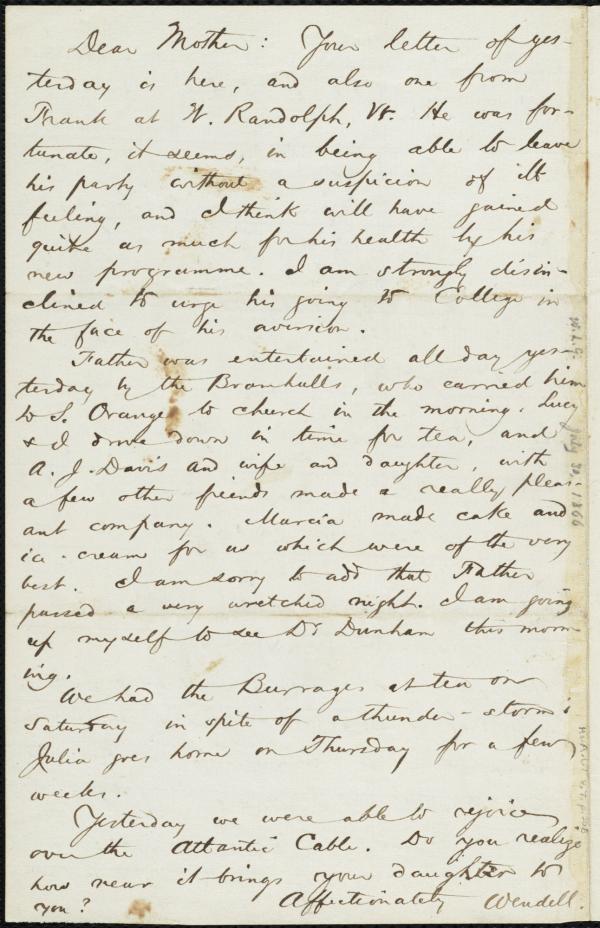 Dear Mother: Your letter of yes-
terday is here, and also one from
Frank at W. Randolph, Vt. He was for-
tunate, it seems, in being able to leave
his party without a suspicion of ill
feeling, and I think will have gained
quite as much for his health by his
new programme. I am strongly disin-
clined to urge his going to College in
the face of his aversion.
Father was entertained all day yes-
terday by the Bramhalls, who carried him
to S. Orange to church in the morning. Lucy
& I drove down in time for tea, and
A. J. Davis and wife and daughter, with
a few other friends made a really pleas-
ant company. Marcia made cake and
ice-cream for us which were of the very
best. I am sorry to add that Father
passed a very wretched night. I am going
up myself to see Dr Dunham this morn-
ing.
We had the Burrages at tea on
Saturday in spite of a thunder-storm;
Julia goes home on Thursday for a few
weeks.
Yesterday we were able to rejoice
over the Atlantic Cable. Do you realize
how near it brings your daughter to
you?
Affectionately Wendell.
W.L.G. July 30, 1866